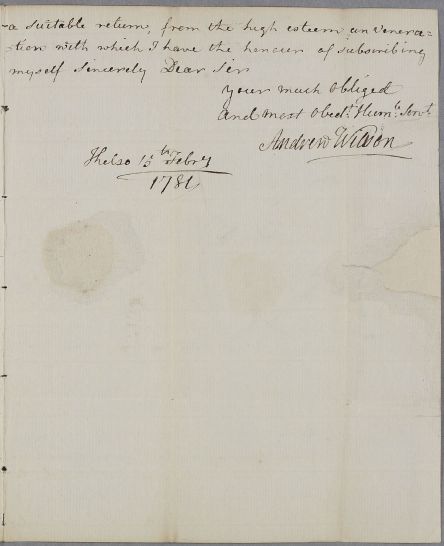 a suitable return, from the high esteem an venera=
=tion with which I have the honour of subscribing
myself Sincerely Dear Sir
your much obliged
and most Obedt. Humle. Servt.
Andrew Wilson
Kelso 15th Febry
1781